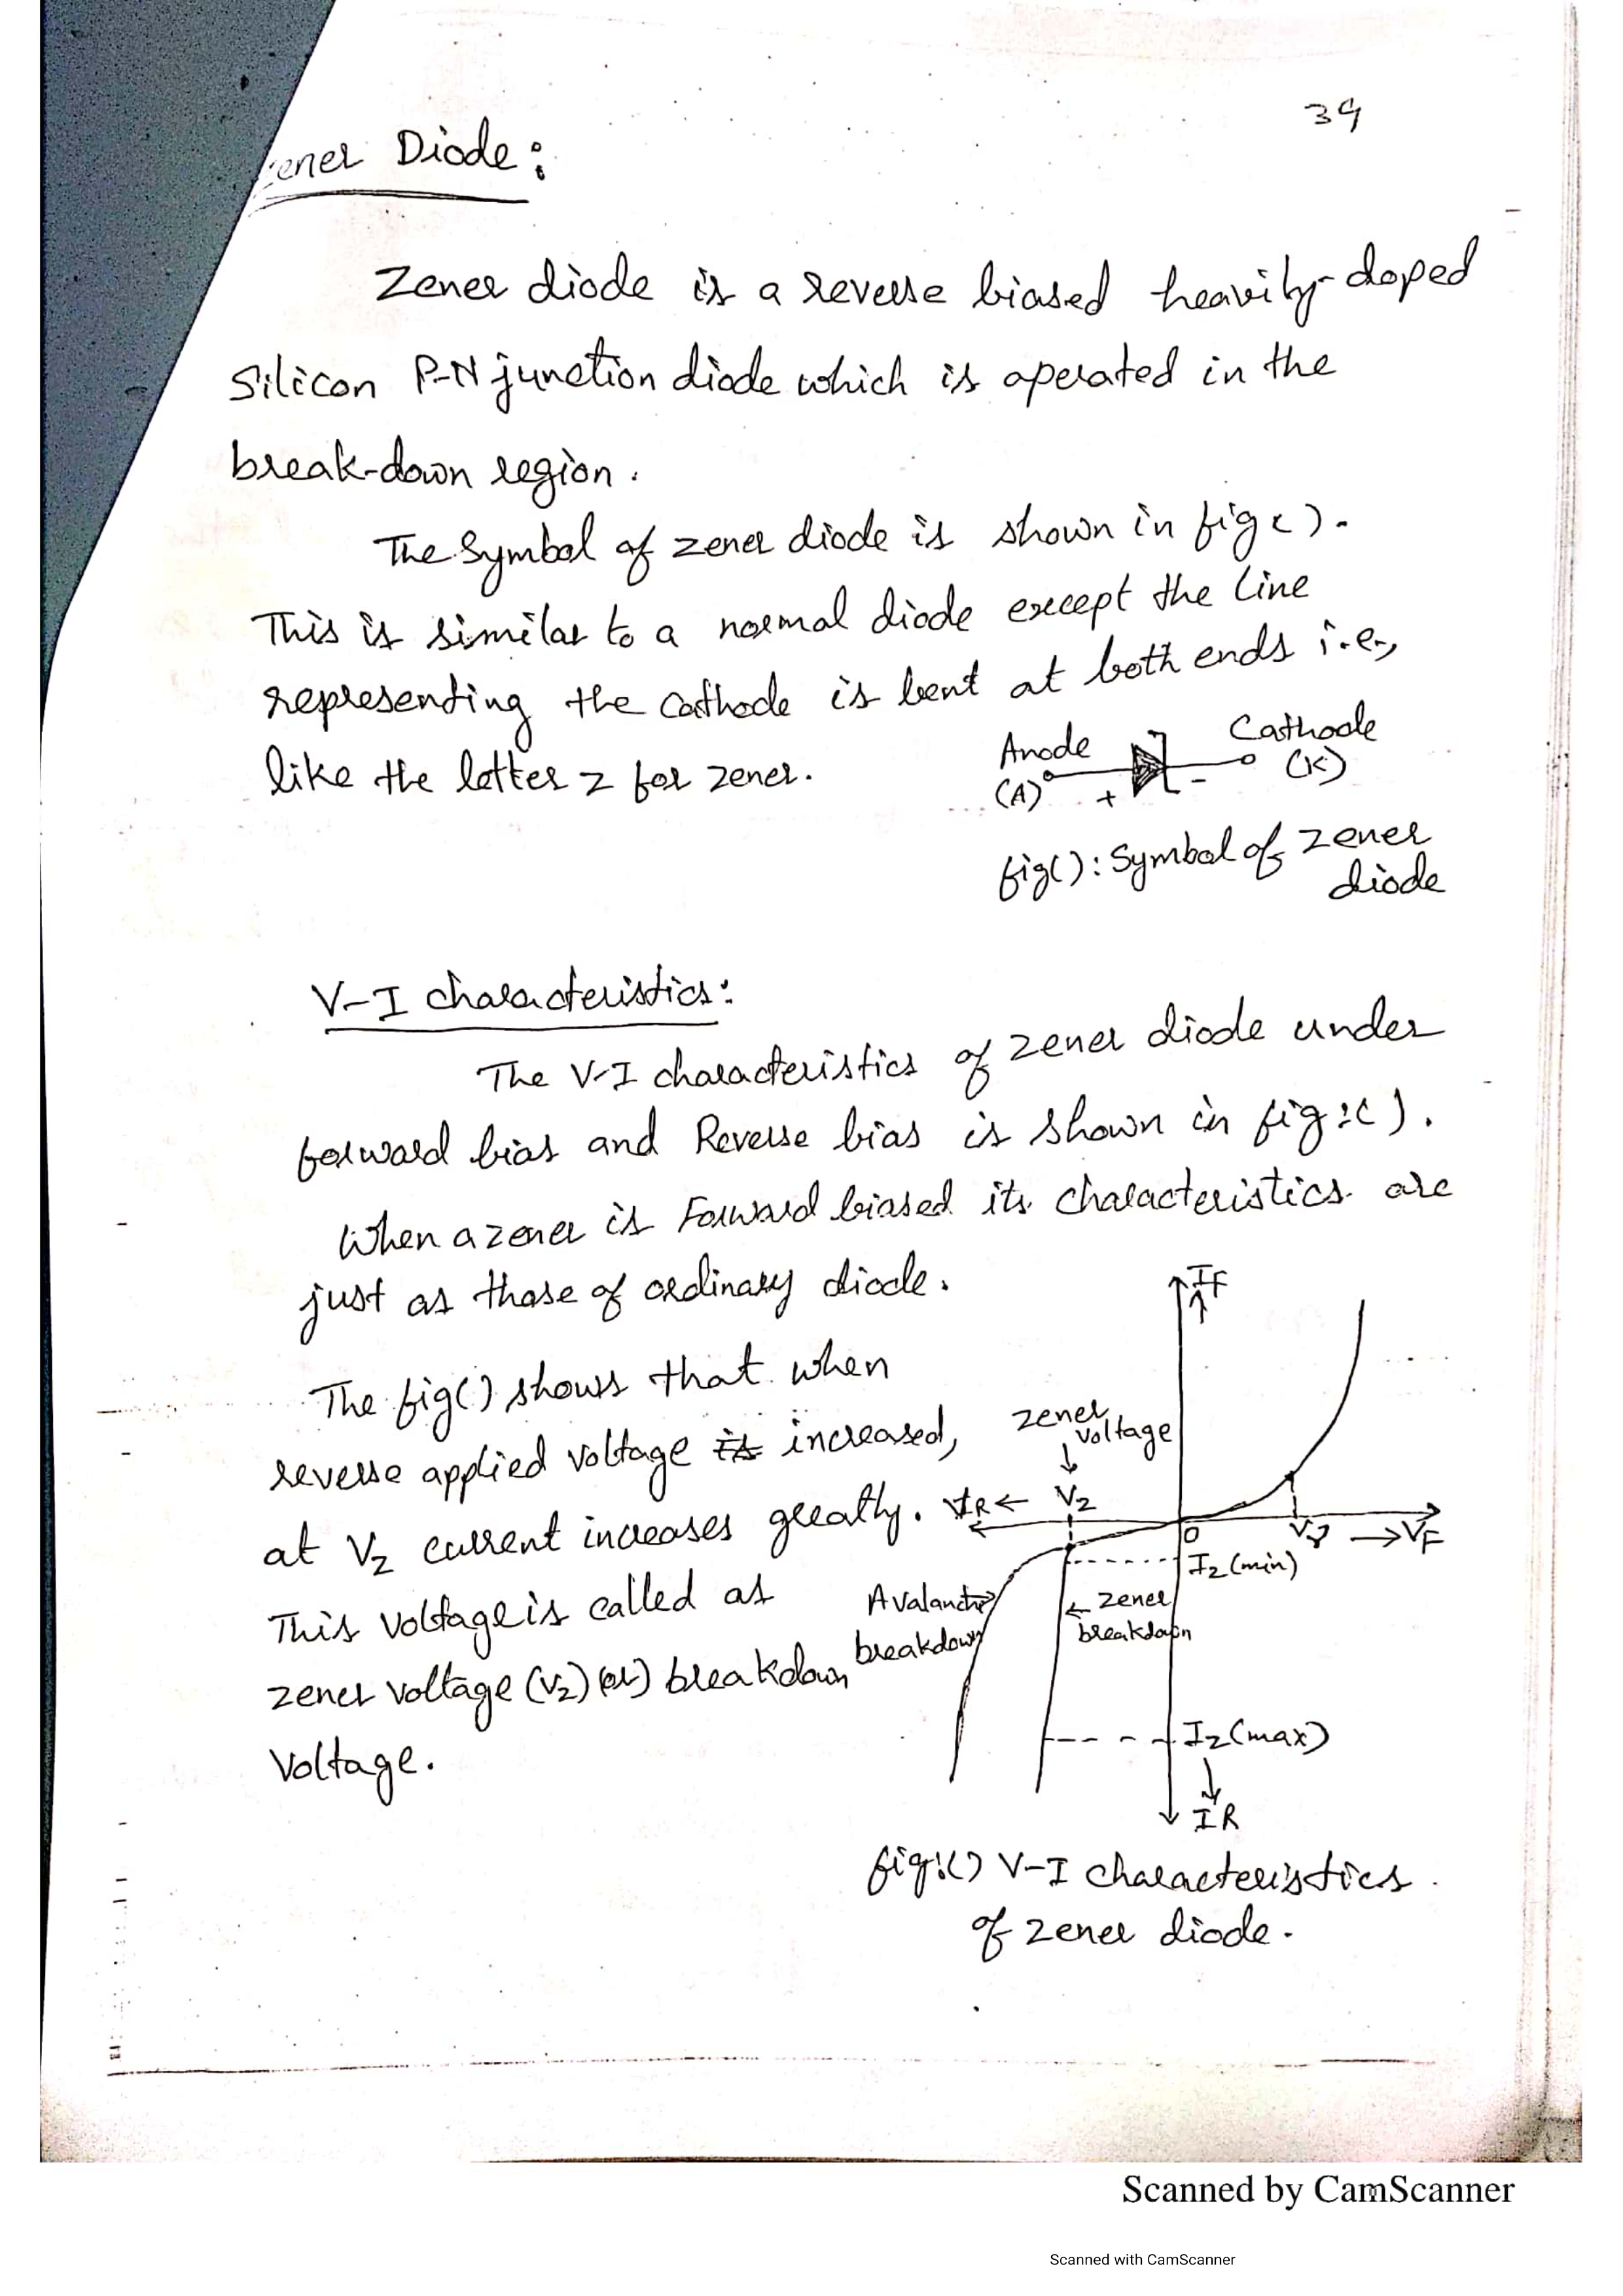 39
ener Diode:
Zener diode is a reverse biased heavily-doped
Silicon P-N junction diode which is operated in the
break-down region.
The Symbol of zener diode is shown in fig( ).
This is similar to a normal diode except the line
representing the cathode is bent at both ends i.e.,
like the letter z for zener.
Anode
Cathode
(A)
+
-
(K)
fig( ): Symbol of zener
diode
V-I characteristics:
The V-I characteristics of zener diode under
forward bias and Reverse bias is shown in fig:( ).
When a zener is Forward biased its characteristics are
just as those of ordinary diode.
The fig( ) shows that when
reverse applied voltage is increased,
at Vz current increases greatly.
This voltage is called as
zener voltage (Vz) (or) breakdown
voltage.
IF
zener
voltage
VR
Vz
O
VF
Iz (min)
Avalanche
breakdown
zener
breakdown
Iz (max)
IR
fig:( ) V-I characteristics
of zener diode.
Scanned by CamScanner
Scanned with CamScanner